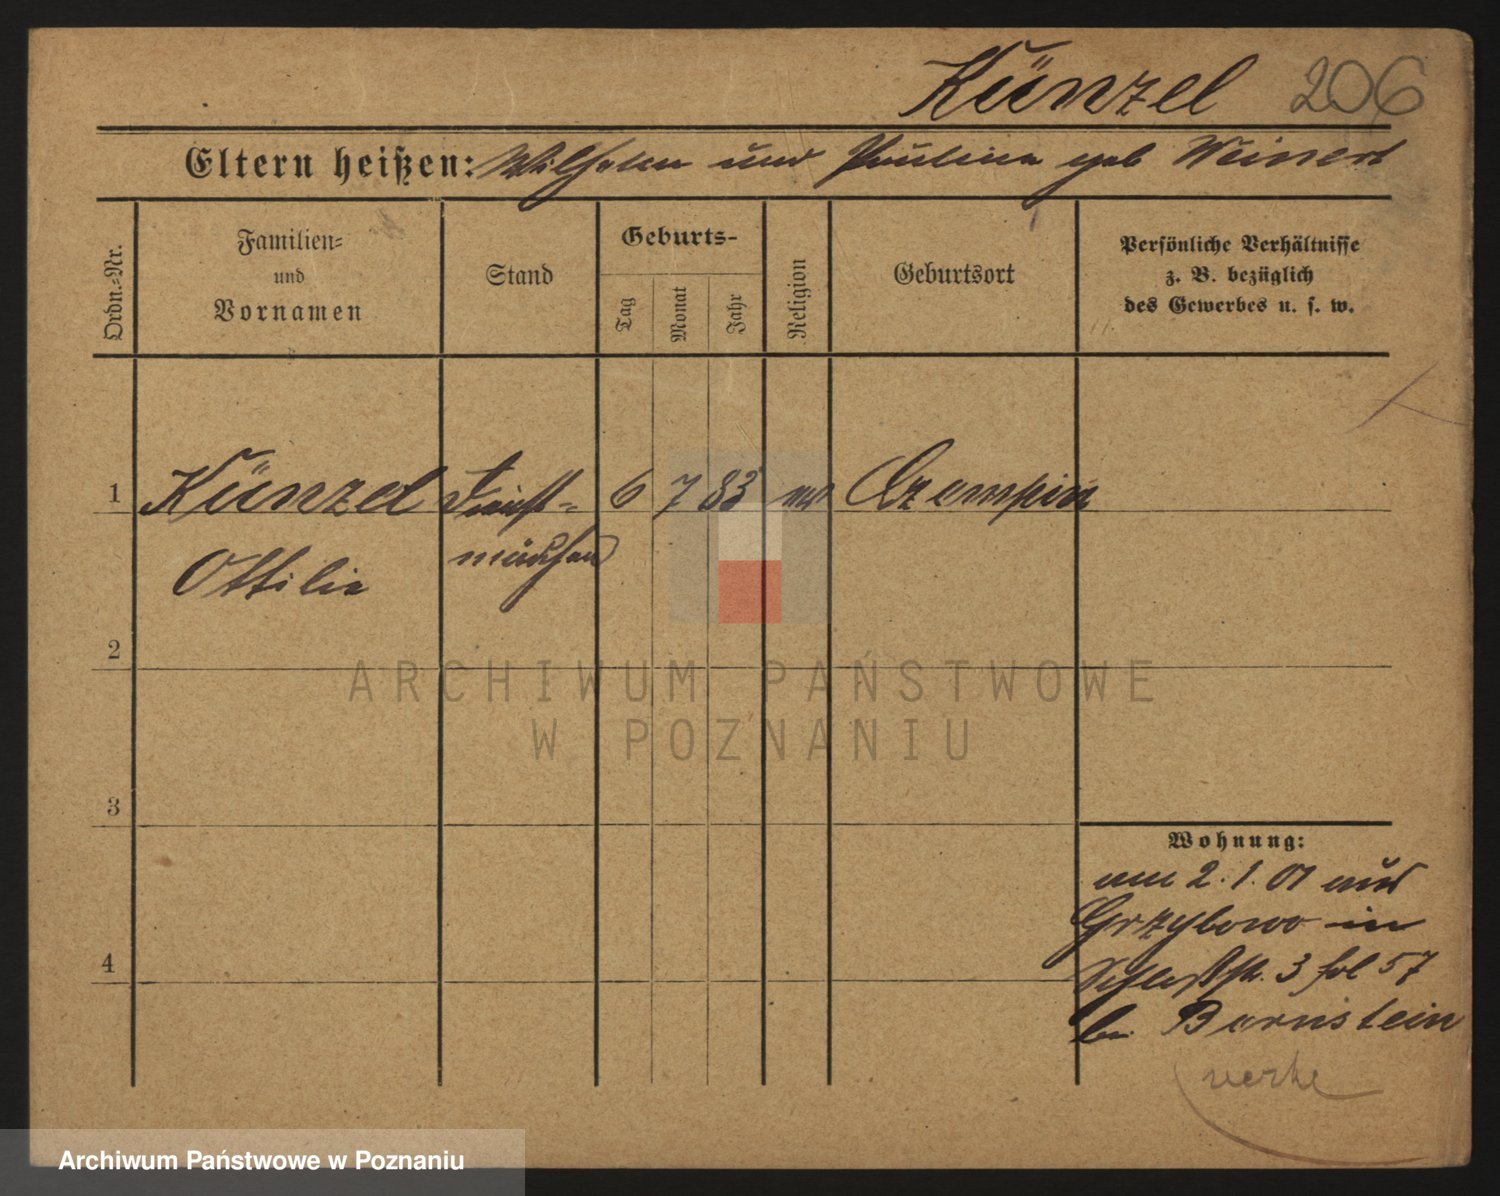 Künzel 206
Eltern heißen: Wilhelm und Pauline geb Weinert
Ordn.-Nr.
Familien-
und
Vornamen
Stand
Geburts-
Tag
Monat
Jahr
Religion
Geburtsort
Persönliche Verhältnisse
z. B. bezüglich
des Gewerbes u. s. w.
1 Künzel Dienst- 6 7 83 Czempin
mädchen
Ottilie
2
ARCHIWUM PAŃSTWOWE
W POZNANIU
3
Wohnung:
am 2.1.01 aus
Grzybowo in
Schloßstr. 3 fol 57
bei Bernstein
4
Archiwum Państwowe w Poznaniu